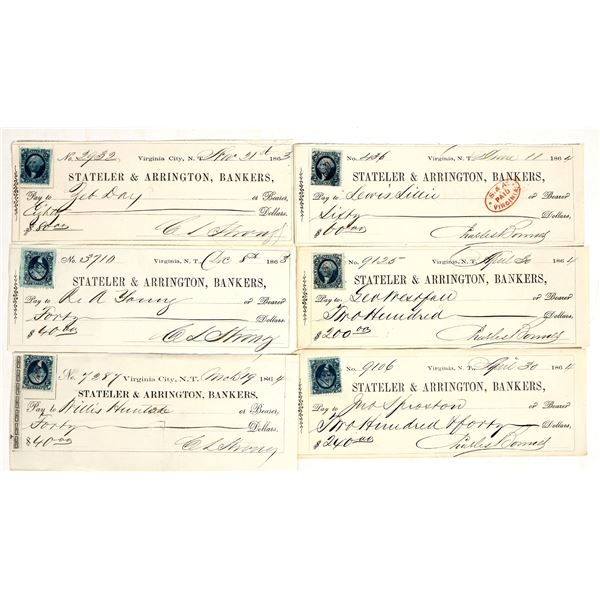 No. 2932 Virginia City, N. T. Nov 21st 1863
STATELER & ARRINGTON, BANKERS,
Pay to Zeb Day or Bearer,
Eighty Dollars,
$80.00 C L Strong
No. 3710 Virginia, N. T. Dec 8th 1863
STATELER & ARRINGTON, BANKERS,
Pay to R. A Young or Bearer
Forty Dollars,
$40.00 C L Strong
No. 7287 Virginia City, N. T. Mch 19 1864
STATELER & ARRINGTON, BANKERS,
Pay to Willis or Bearer,
Forty Dollars,
$40.00 C L Strong
No. 426 Virginia, N. T. June 11 1864
STATELER & ARRINGTON, BANKERS,
Pay to Lewis Lillie or Bearer
Sixty Dollars,
$60.00 Charles Bonner
S. & A.
PAID
VIRGINIA
No. 9125 Virginia, N. T. April 30 1864
STATELER & ARRINGTON, BANKERS,
Pay to Geo Westfall or Bearer
Two Hundred Dollars,
$200.00 Charles Bonner
No. 9106 Virginia, N. T. April 30 1864
STATELER & ARRINGTON, BANKERS,
Pay to Jno Sproston or Bearer
Two Hundred & forty Dollars,
$240.00 Charles Bonner